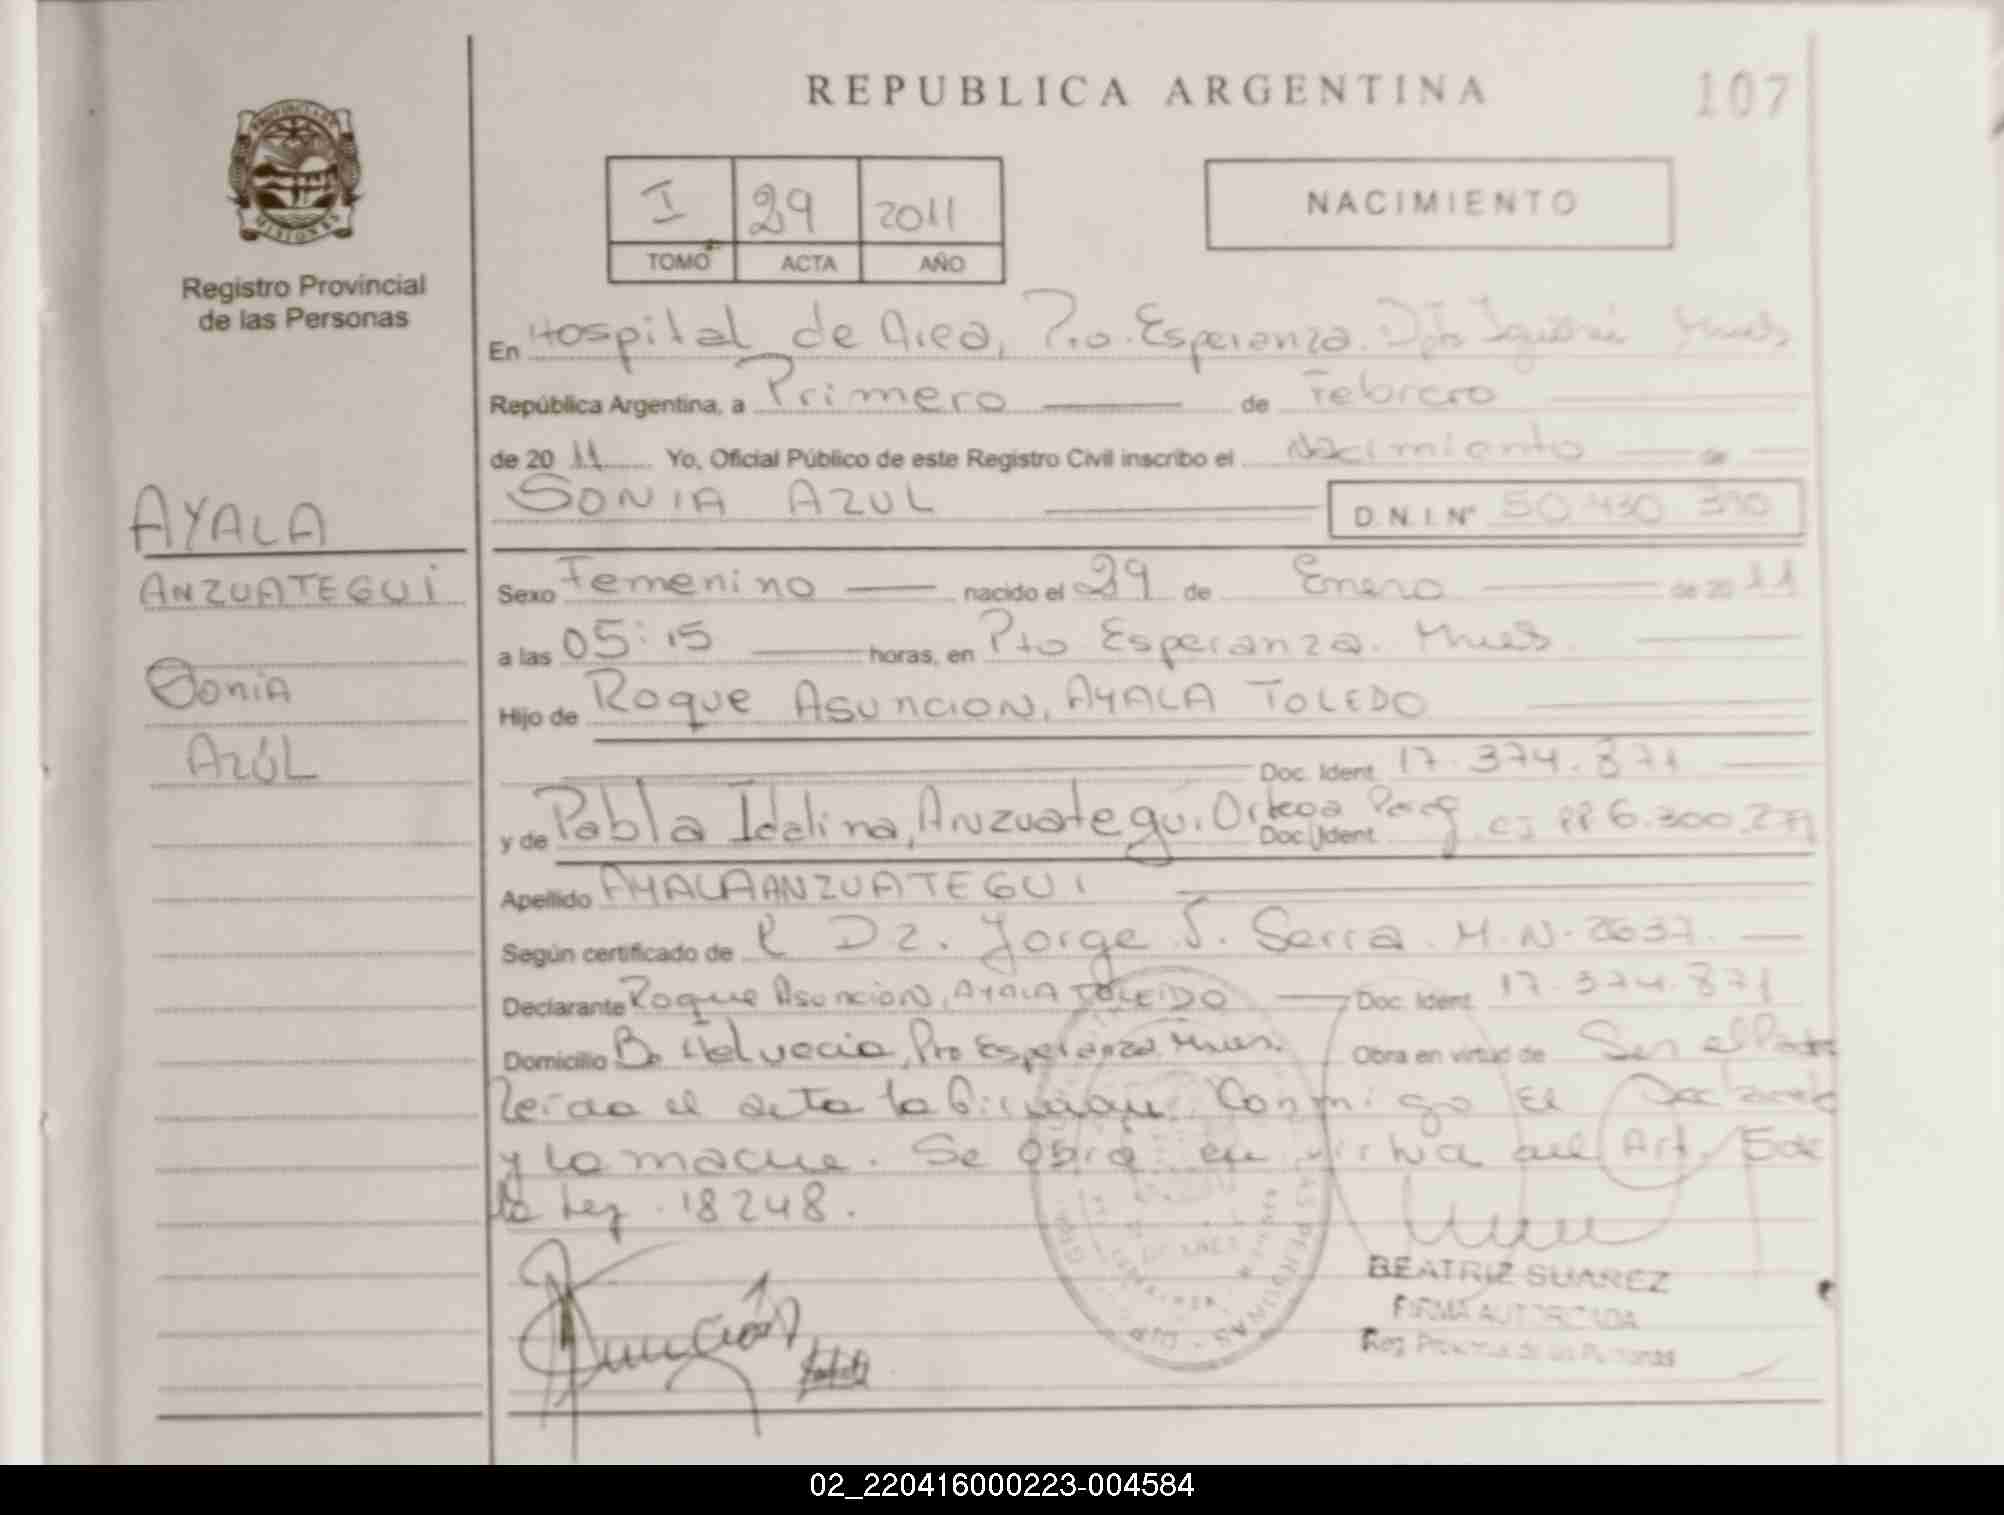 REPUBLICA ARGENTINA
107
PROVINCIA DE
MISIONES
Registro Provincial
de las Personas
I 29 2011
TOMO ACTA AÑO
NACIMIENTO
En Hospital de Area, Pto. Esperanza. Dpto Iguazú
República Argentina, a Primero de Febrero
de 20 11 Yo, Oficial Público de este Registro Civil inscribo el Nacimiento de
SONIA AZUL D.N.I. Nº 50.430.390
AYALA
ANZUATEGUI
Sonia
AZÚL
Sexo Femenino nacido el 29 de Enero de 20 11
a las 05:15 horas, en Pto Esperanza. Mnes.
Hijo de Roque ASUNCION, AYALA TOLEDO
Doc. Ident. 17.374.871
y de Pabla Idalina, Anzuategui Ortega Doc. Ident. CI 6.300.271
Apellido AYALA ANZUATEGUI
Según certificado de Jorge J. Serra. M.N. 2637.
Declarante Roque Asuncion, AYALA TOLEDO Doc. Ident. 17.374.871
Domicilio Bo Helvecia, Pto Esperanza Mnes. Obra en virtud de Ser el Padre
Leída el acta la firman Conmigo El Declarante
y la madre. Se obra en virtud del Art. 5 de
la Ley. 18248.
BEATRIZ SUAREZ
FIRMA AUTORIZADA
Reg. Provincial de las Personas
02_220416000223-004584